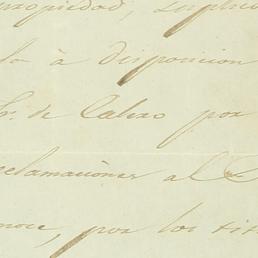 propiedad,
à disposicion
Sr. de Calvo por
reclamaciones al
por los